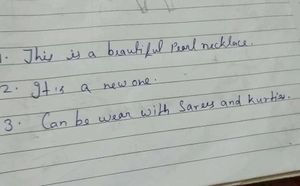 1. This is a beautiful Pearl necklace.
2. It is a new one.
3. Can be wear with Sarees and kurties.